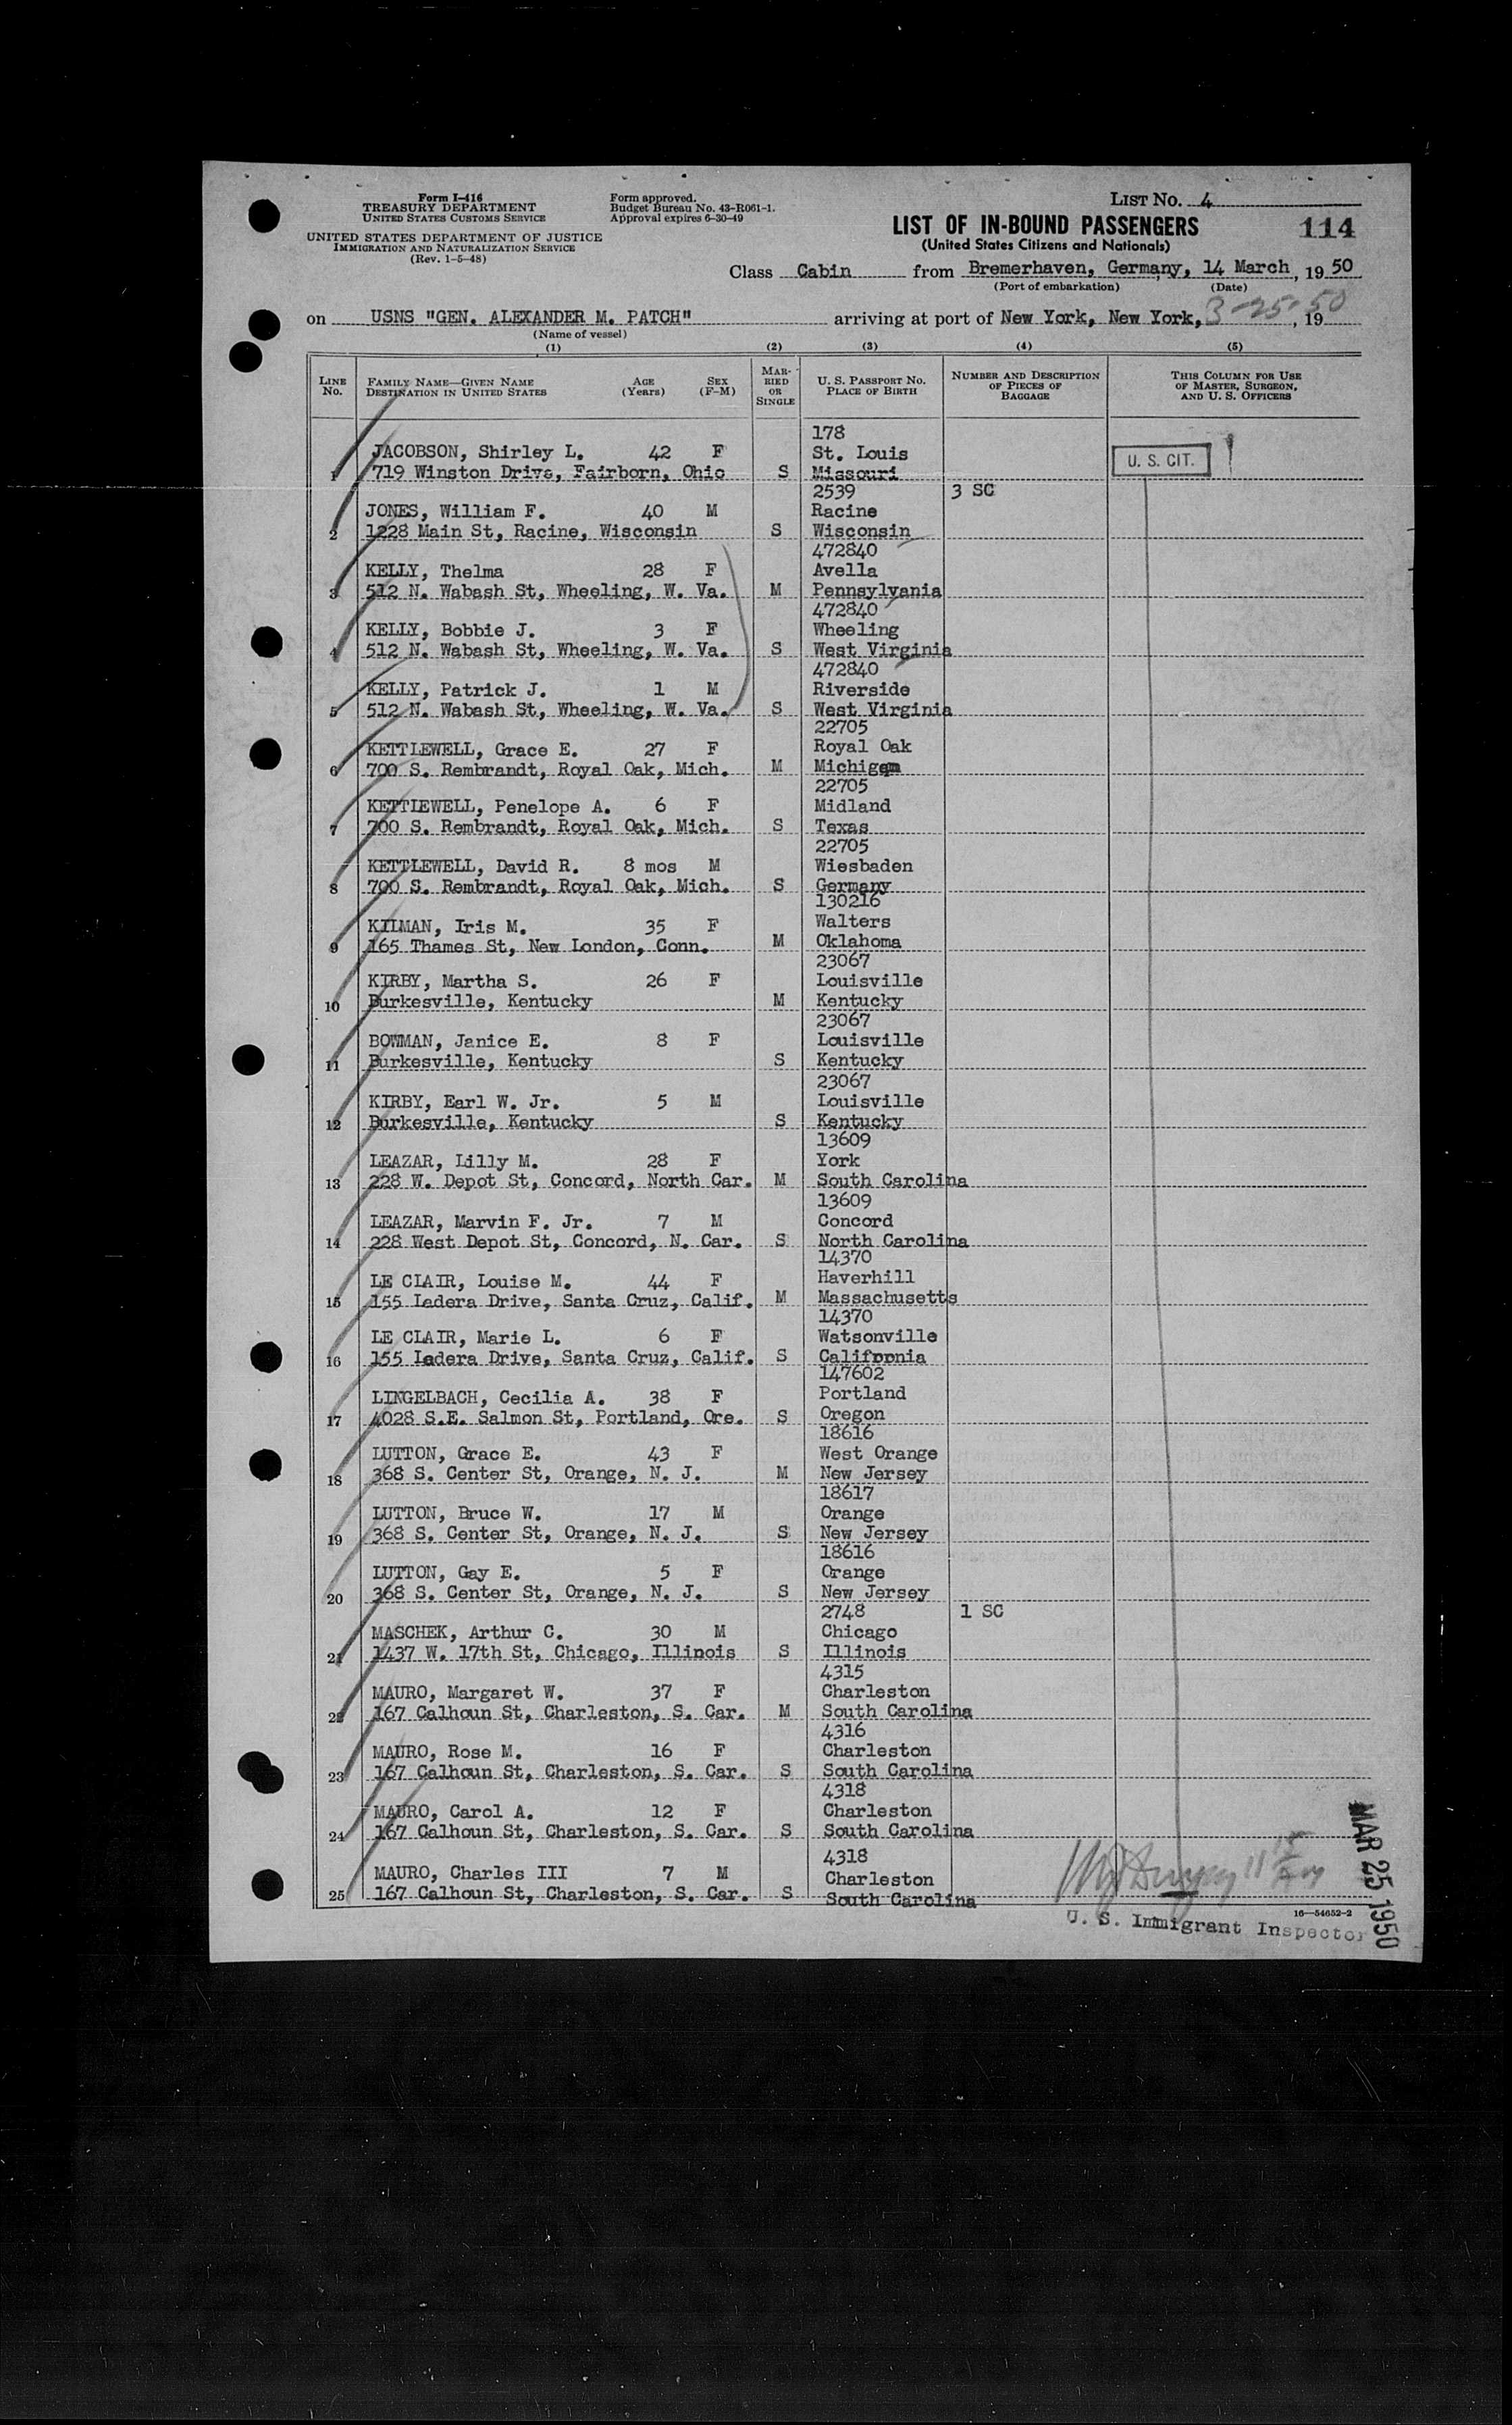 Form I-416
TREASURY DEPARTMENT
UNITED STATES CUSTOMS SERVICE
UNITED STATES DEPARTMENT OF JUSTICE
IMMIGRATION AND NATURALIZATION SERVICE
(Rev. 1-5-48)
Form approved.
Budget Bureau No. 43-R061-1.
Approval expires 6-30-49
LIST No. 4
LIST OF IN-BOUND PASSENGERS
114
(United States Citizens and Nationals)
Class Cabin from Bremerhaven, Germany, 14 March, 1950
(Port of embarkation) (Date)
on USNS "GEN. ALEXANDER M. PATCH" arriving at port of New York, New York, 3-25-50, 19
(Name of vessel)
(1) (2) (3) (4) (5)
LINE No. FAMILY NAME—GIVEN NAME DESTINATION IN UNITED STATES AGE (Years) SEX (F-M) MARRIED OR SINGLE U. S. PASSPORT No. PLACE OF BIRTH NUMBER AND DESCRIPTION OF PIECES OF BAGGAGE THIS COLUMN FOR USE OF MASTER, SURGEON, AND U. S. OFFICERS
178
JACOBSON, Shirley L. 42 F St. Louis U. S. CIT.
1 719 Winston Drive, Fairborn, Ohio S Missouri
2539 3 SC
JONES, William F. 40 M Racine
2 1228 Main St, Racine, Wisconsin S Wisconsin
472840
KELLY, Thelma 28 F Avella
3 512 N. Wabash St, Wheeling, W. Va. M Pennsylvania
472840
KELLY, Bobbie J. 3 F Wheeling
4 512 N. Wabash St, Wheeling, W. Va. S West Virginia
472840
KELLY, Patrick J. 1 M Riverside
5 512 N. Wabash St, Wheeling, W. Va. S West Virginia
22705
KETTLEWELL, Grace E. 27 F Royal Oak
6 700 S. Rembrandt, Royal Oak, Mich. M Michigan
22705
KETTLEWELL, Penelope A. 6 F Midland
7 700 S. Rembrandt, Royal Oak, Mich. S Texas
22705
KETTLEWELL, David R. 8 mos M Wiesbaden
8 700 S. Rembrandt, Royal Oak, Mich. S Germany
130216
KILMAN, Iris M. 35 F Walters
9 165 Thames St, New London, Conn. M Oklahoma
23067
KIRBY, Martha S. 26 F Louisville
10 Burkesville, Kentucky M Kentucky
23067
BOWMAN, Janice E. 8 F Louisville
11 Burkesville, Kentucky S Kentucky
23067
KIRBY, Earl W. Jr. 5 M Louisville
12 Burkesville, Kentucky S Kentucky
13609
LEAZAR, Lilly M. 28 F York
13 228 W. Depot St, Concord, North Car. M South Carolina
13609
LEAZAR, Marvin F. Jr. 7 M Concord
14 228 West Depot St, Concord, N. Car. S North Carolina
14370
LE CLAIR, Louise M. 44 F Haverhill
15 155 Ladera Drive, Santa Cruz, Calif. M Massachusetts
14370
LE CLAIR, Marie L. 6 F Watsonville
16 155 Ladera Drive, Santa Cruz, Calif. S California
147602
LINGELBACH, Cecilia A. 38 F Portland
17 4028 S.E. Salmon St, Portland, Ore. S Oregon
18616
LUTTON, Grace E. 43 F West Orange
18 368 S. Center St, Orange, N. J. M New Jersey
18617
LUTTON, Bruce W. 17 M Orange
19 368 S. Center St, Orange, N. J. S New Jersey
18616
LUTTON, Gay E. 5 F Orange
20 368 S. Center St, Orange, N. J. S New Jersey
2748 1 SC
MASCHEK, Arthur C. 30 M Chicago
21 1437 W. 17th St, Chicago, Illinois S Illinois
4315
MAURO, Margaret W. 37 F Charleston
22 167 Calhoun St, Charleston, S. Car. M South Carolina
4316
MAURO, Rose M. 16 F Charleston
23 167 Calhoun St, Charleston, S. Car. S South Carolina
4318
MAURO, Carol A. 12 F Charleston
24 167 Calhoun St, Charleston, S. Car. S South Carolina
4318
MAURO, Charles III 7 M Charleston
25 167 Calhoun St, Charleston, S. Car. S South Carolina
16—54652-2
U. S. Immigrant Inspector
MAR 25 1950